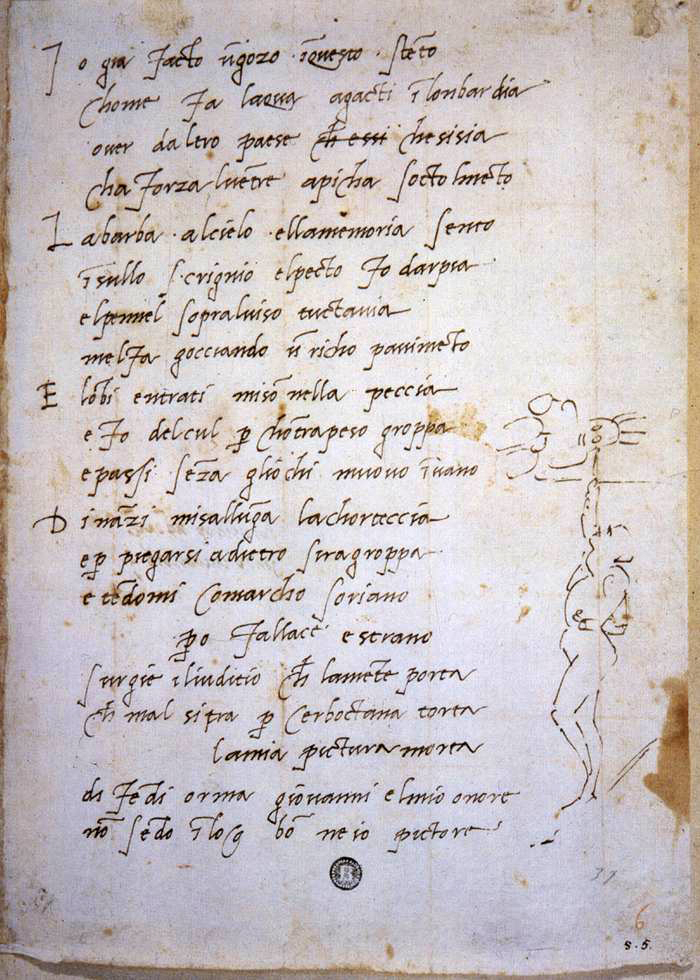 I o gia facto ūgozo īquesto stēto
chome fa laqua agacti ī lonbardia
over dalero paese ch̄ essi chesisia
cha forza lvētre apicha socto lmēto
L abarba alcielo ellamemoria sento
īsullo scrignio elpecto fo darpia
elpennel sopralviso tuctavia
melfa gocciando ū richo pavimēto
E lōbi entrati misō nella peccia
e fo delcul p̱ chōtrapeso groppa
e passi sēza gliochi muovo īvano
D ināzi misallūga lachorteccia
e p̱ piegarsi adietro siragroppa
e tēdomi comarcho soriano
p̱o fallace e strano
surgie iliuditio ch̄ lamēte porta
ch̄ mal sitra p̱ cerboctana torta
lamia pictura morta
di fēdi orma giovanni elmio onore
nō sēdo ī log bō ne io pictore
39
6
s. 5.